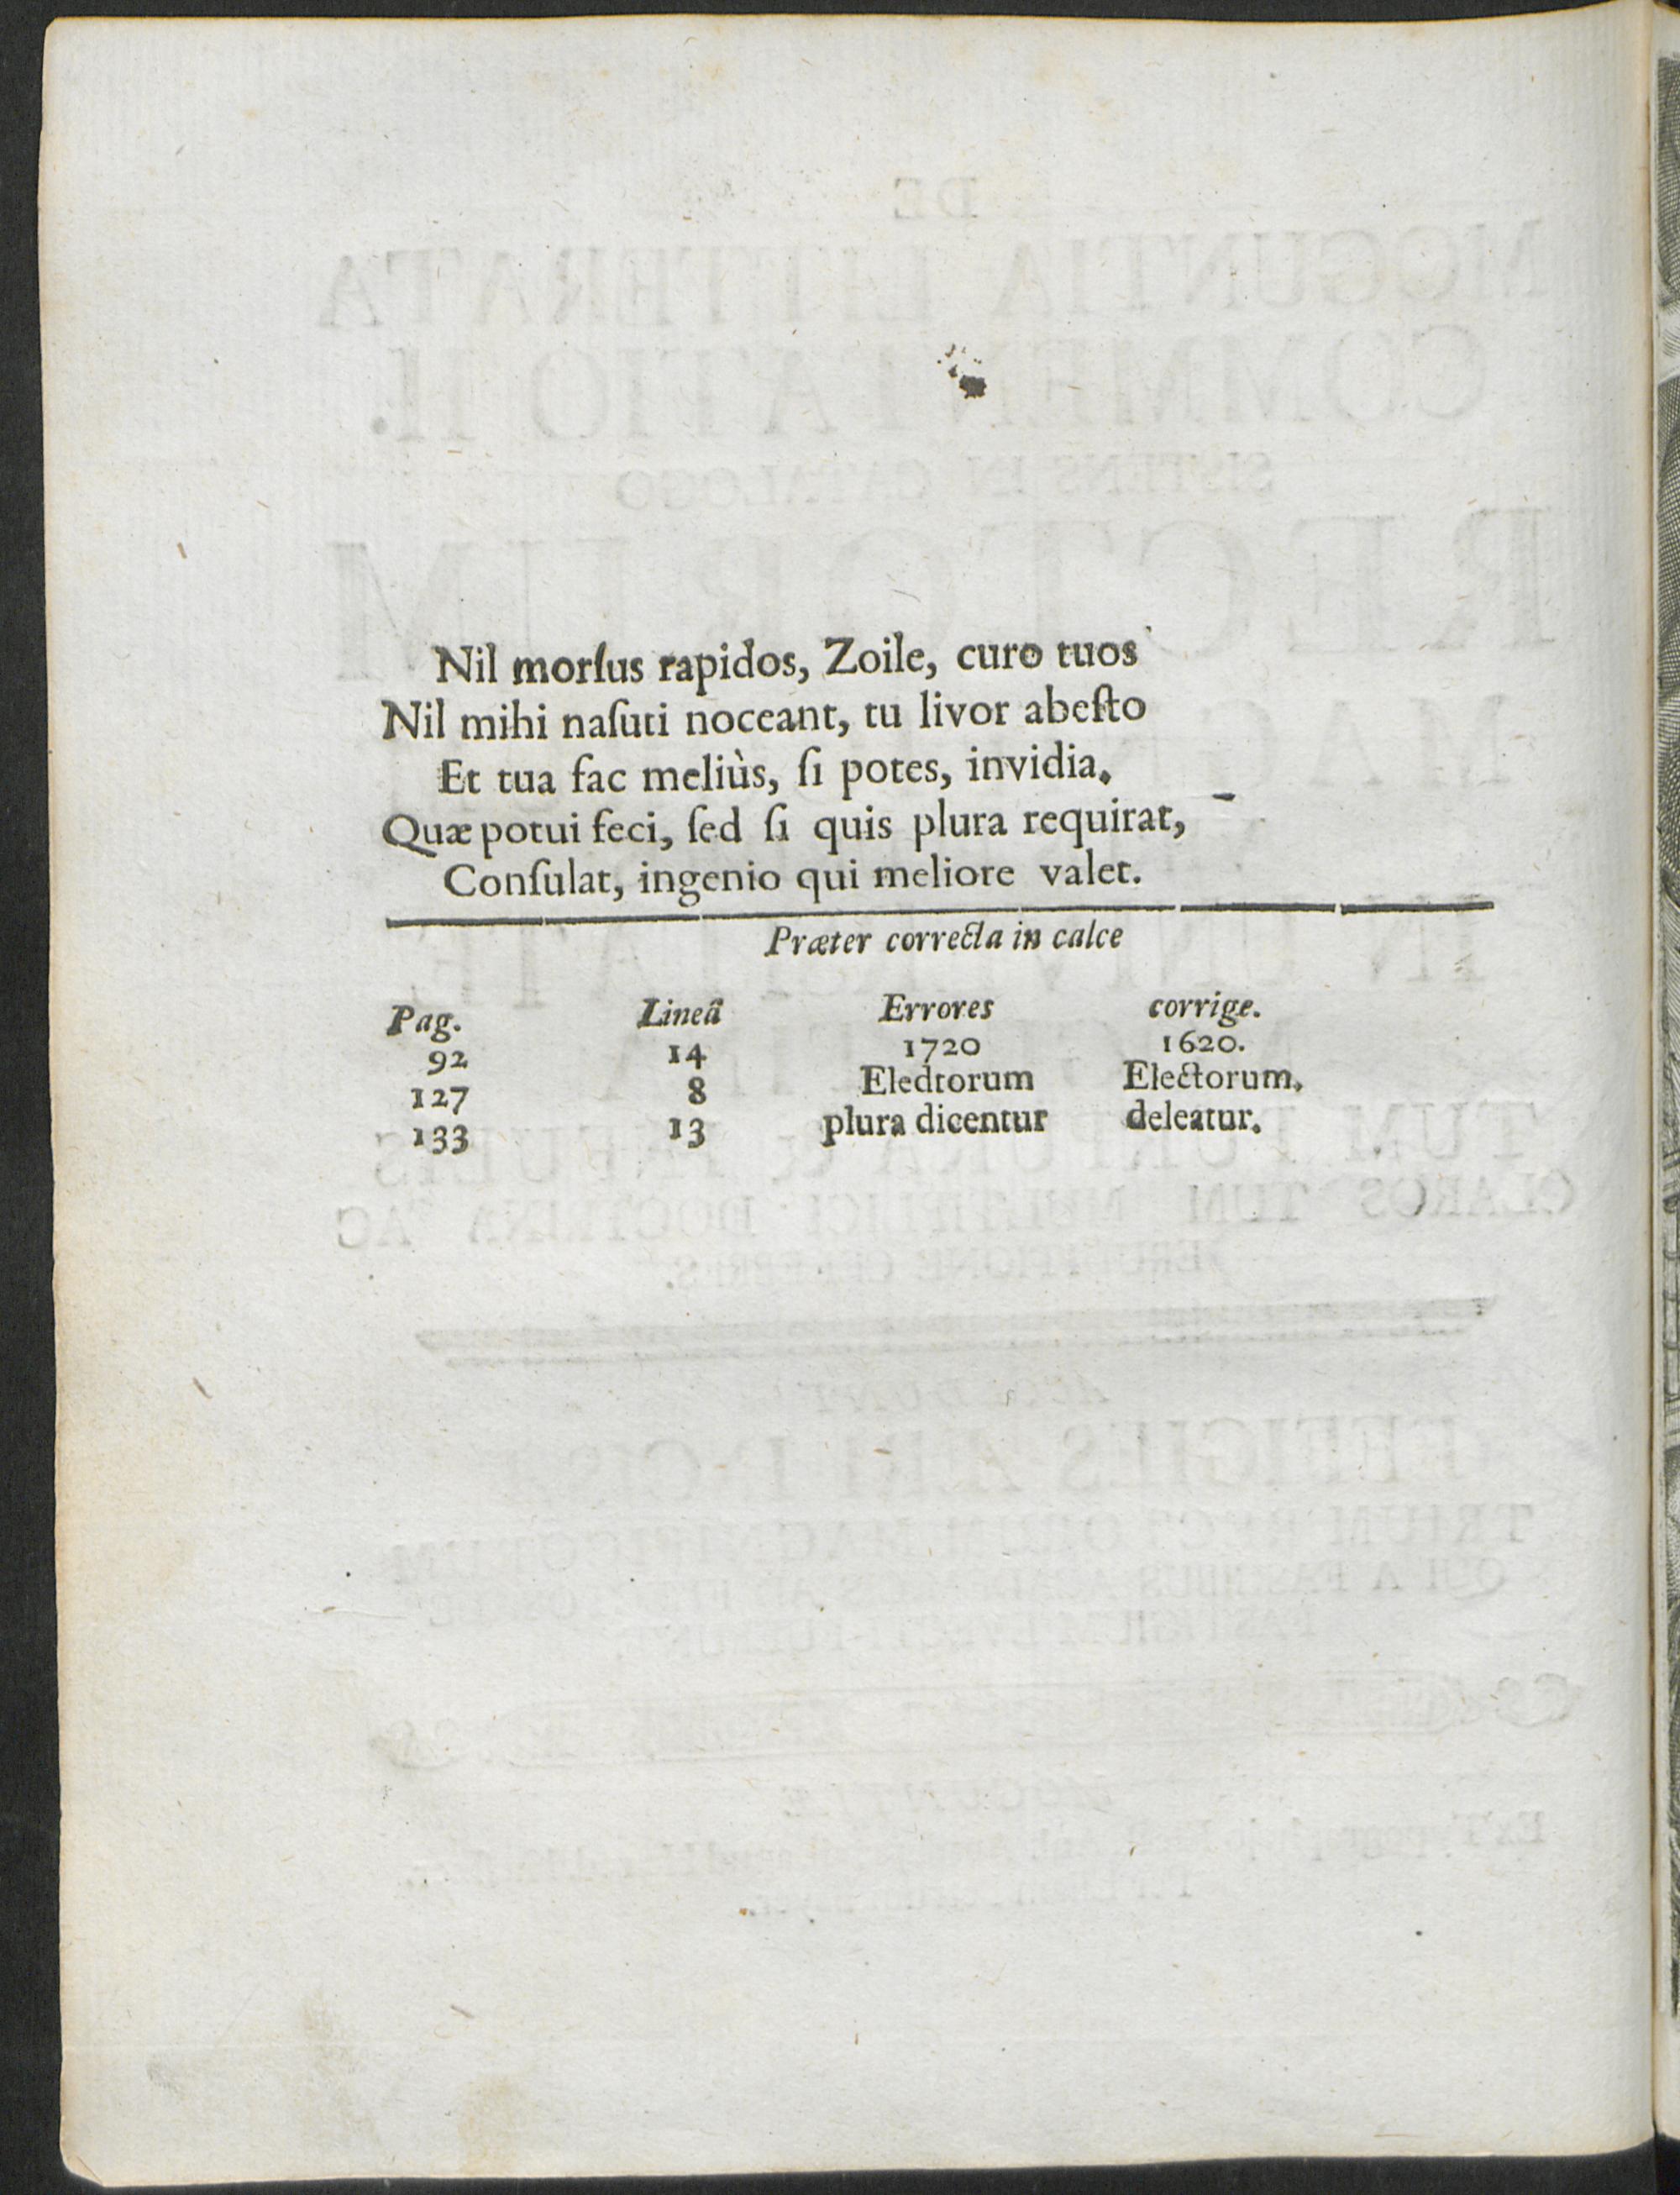 Nil morſus rapidos, Zoile, curo tuos
Nil mihi naſuti noceant, tu livor abeſto
Et tua fac meliùs, ſi potes, invidia.
Quæ potui feci, ſed ſi quis plura requirat,
Conſulat, ingenio qui meliore valet.
Præter correcta in calce
Pag. Lineâ Errores corrige.
92 14 1720 1620.
127 8 Eledtorum Electorum.
133 13 plura dicentur deleatur.